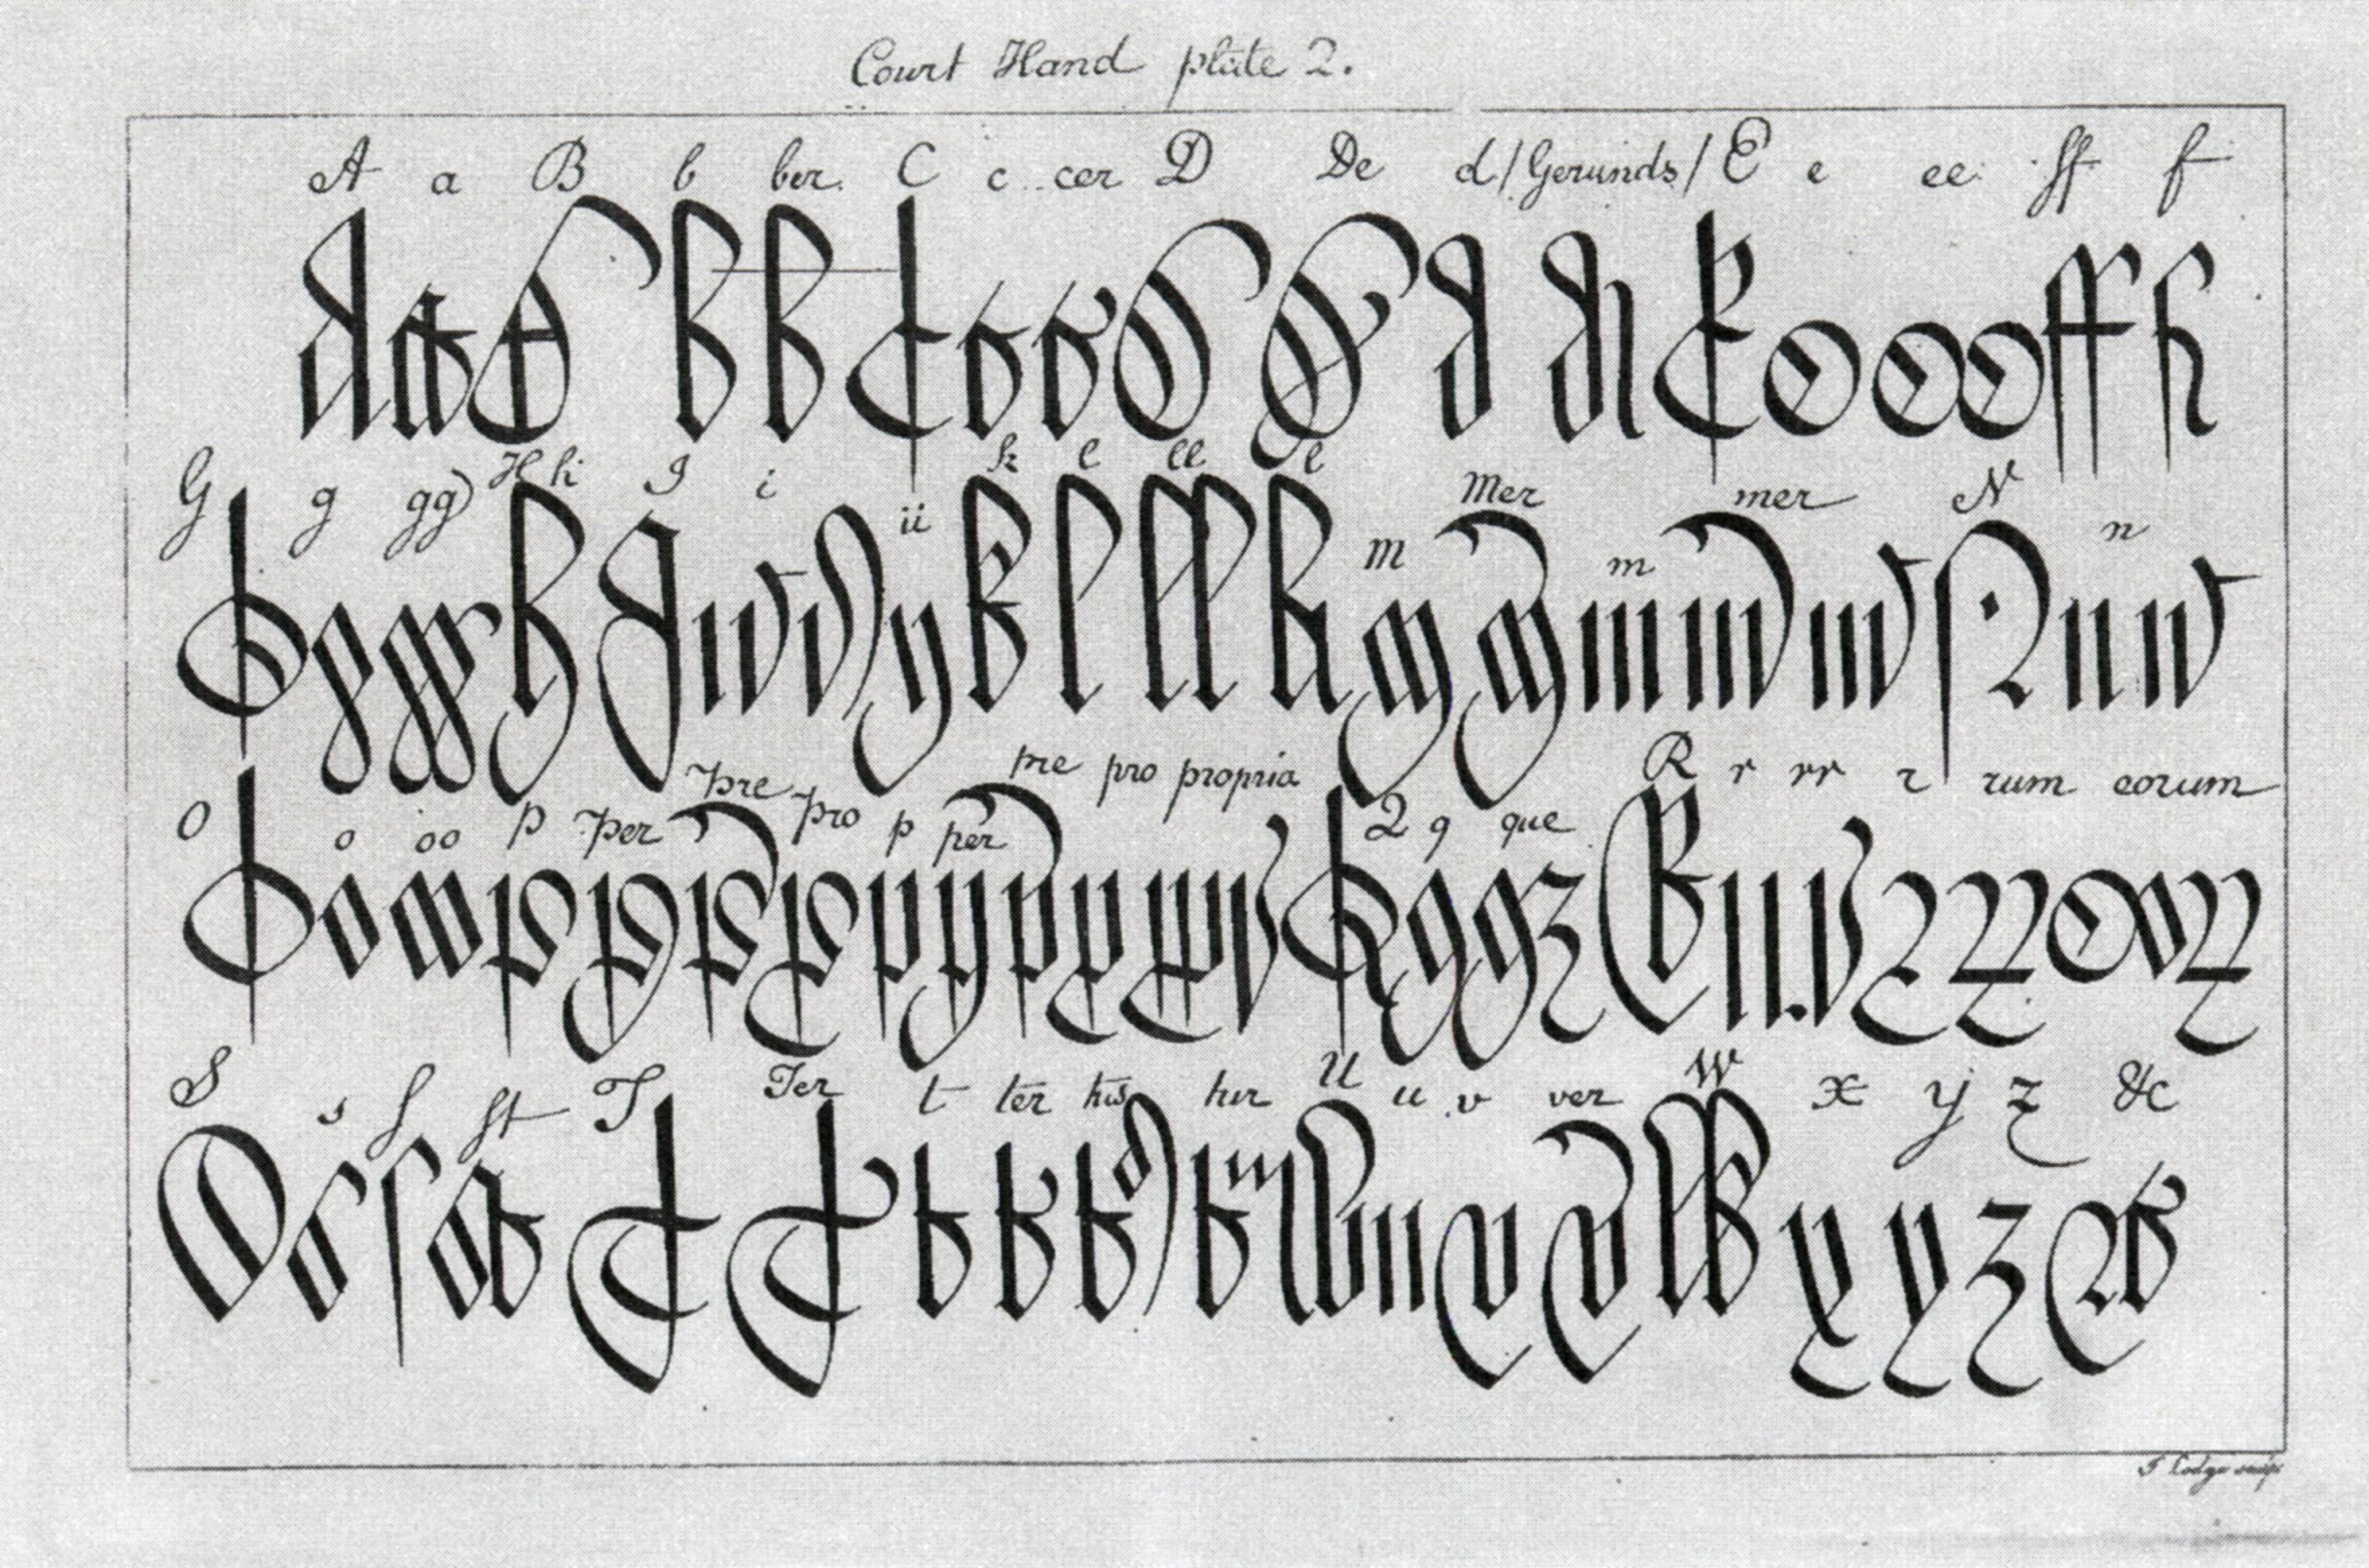 Court Hand plate 2.
A a B b ber. C c cer D De d/Gerunds/ E e ee ff f
G g gg H h I i ii k l ll l M Mer m mer N n
O o oo p per pre pro p per pre pro propria Q q que R r rr r rum eorum
S s ſ ſt T Ter t ter tis tur U u v ver W x y z &c